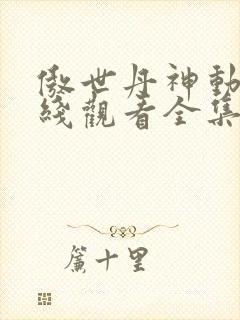 傲世丹神動
綫觀看全集
簾十里